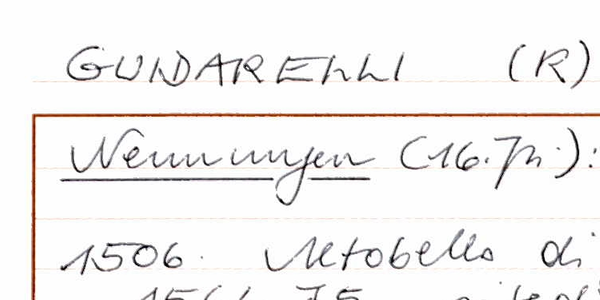 GUIDARELLI (R)
Nennungen (16. Jh.):
1506. Altobello di